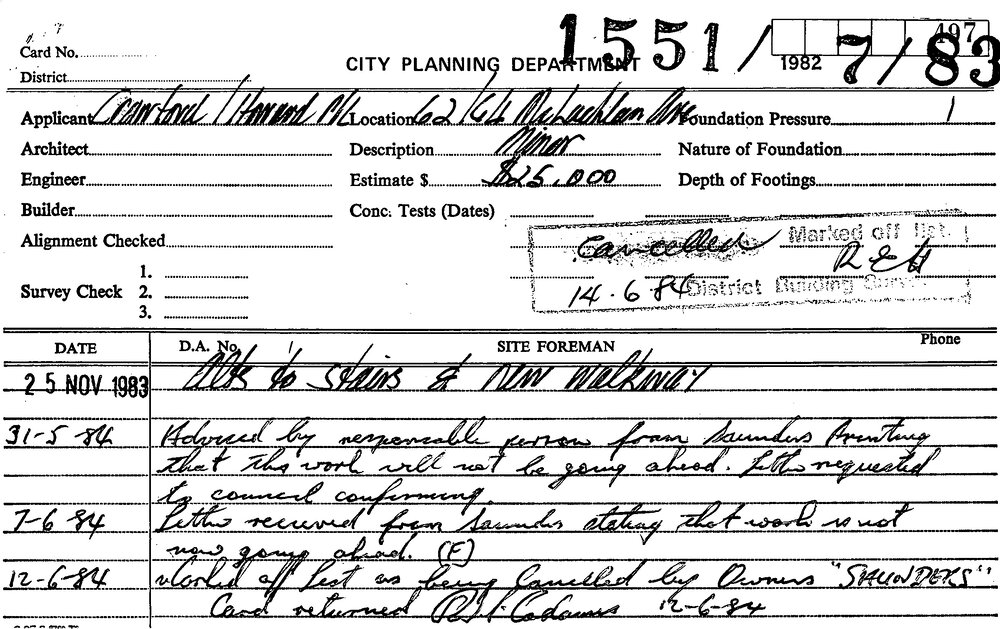 Card No.
District
CITY PLANNING DEPARTMENT
1551/
1982
497
7/83
Applicant Crawford / Howard P/L Location 62/64 McLachlan Ave Foundation Pressure 1
Architect Description Minor Nature of Foundation
Engineer Estimate $ $25,000 Depth of Footings
Builder Conc. Tests (Dates)
Alignment Checked
Cancelled Marked off list.
14.6.84 District Building
1.
Survey Check 2.
3.
DATE D.A. No. SITE FOREMAN Phone
25 NOV 1983 Alts to stairs & new walkway
31-5-84 Advised by responsable person from Saunders Printing
that this work will not be going ahead. Letter requested
to council confirming.
7-6-84 Letter received from Saunders stating that work is not
now going ahead. (F)
12-6-84 Marked off list as being Cancelled by Owners "SAUNDERS"
Card returned 12-6-84